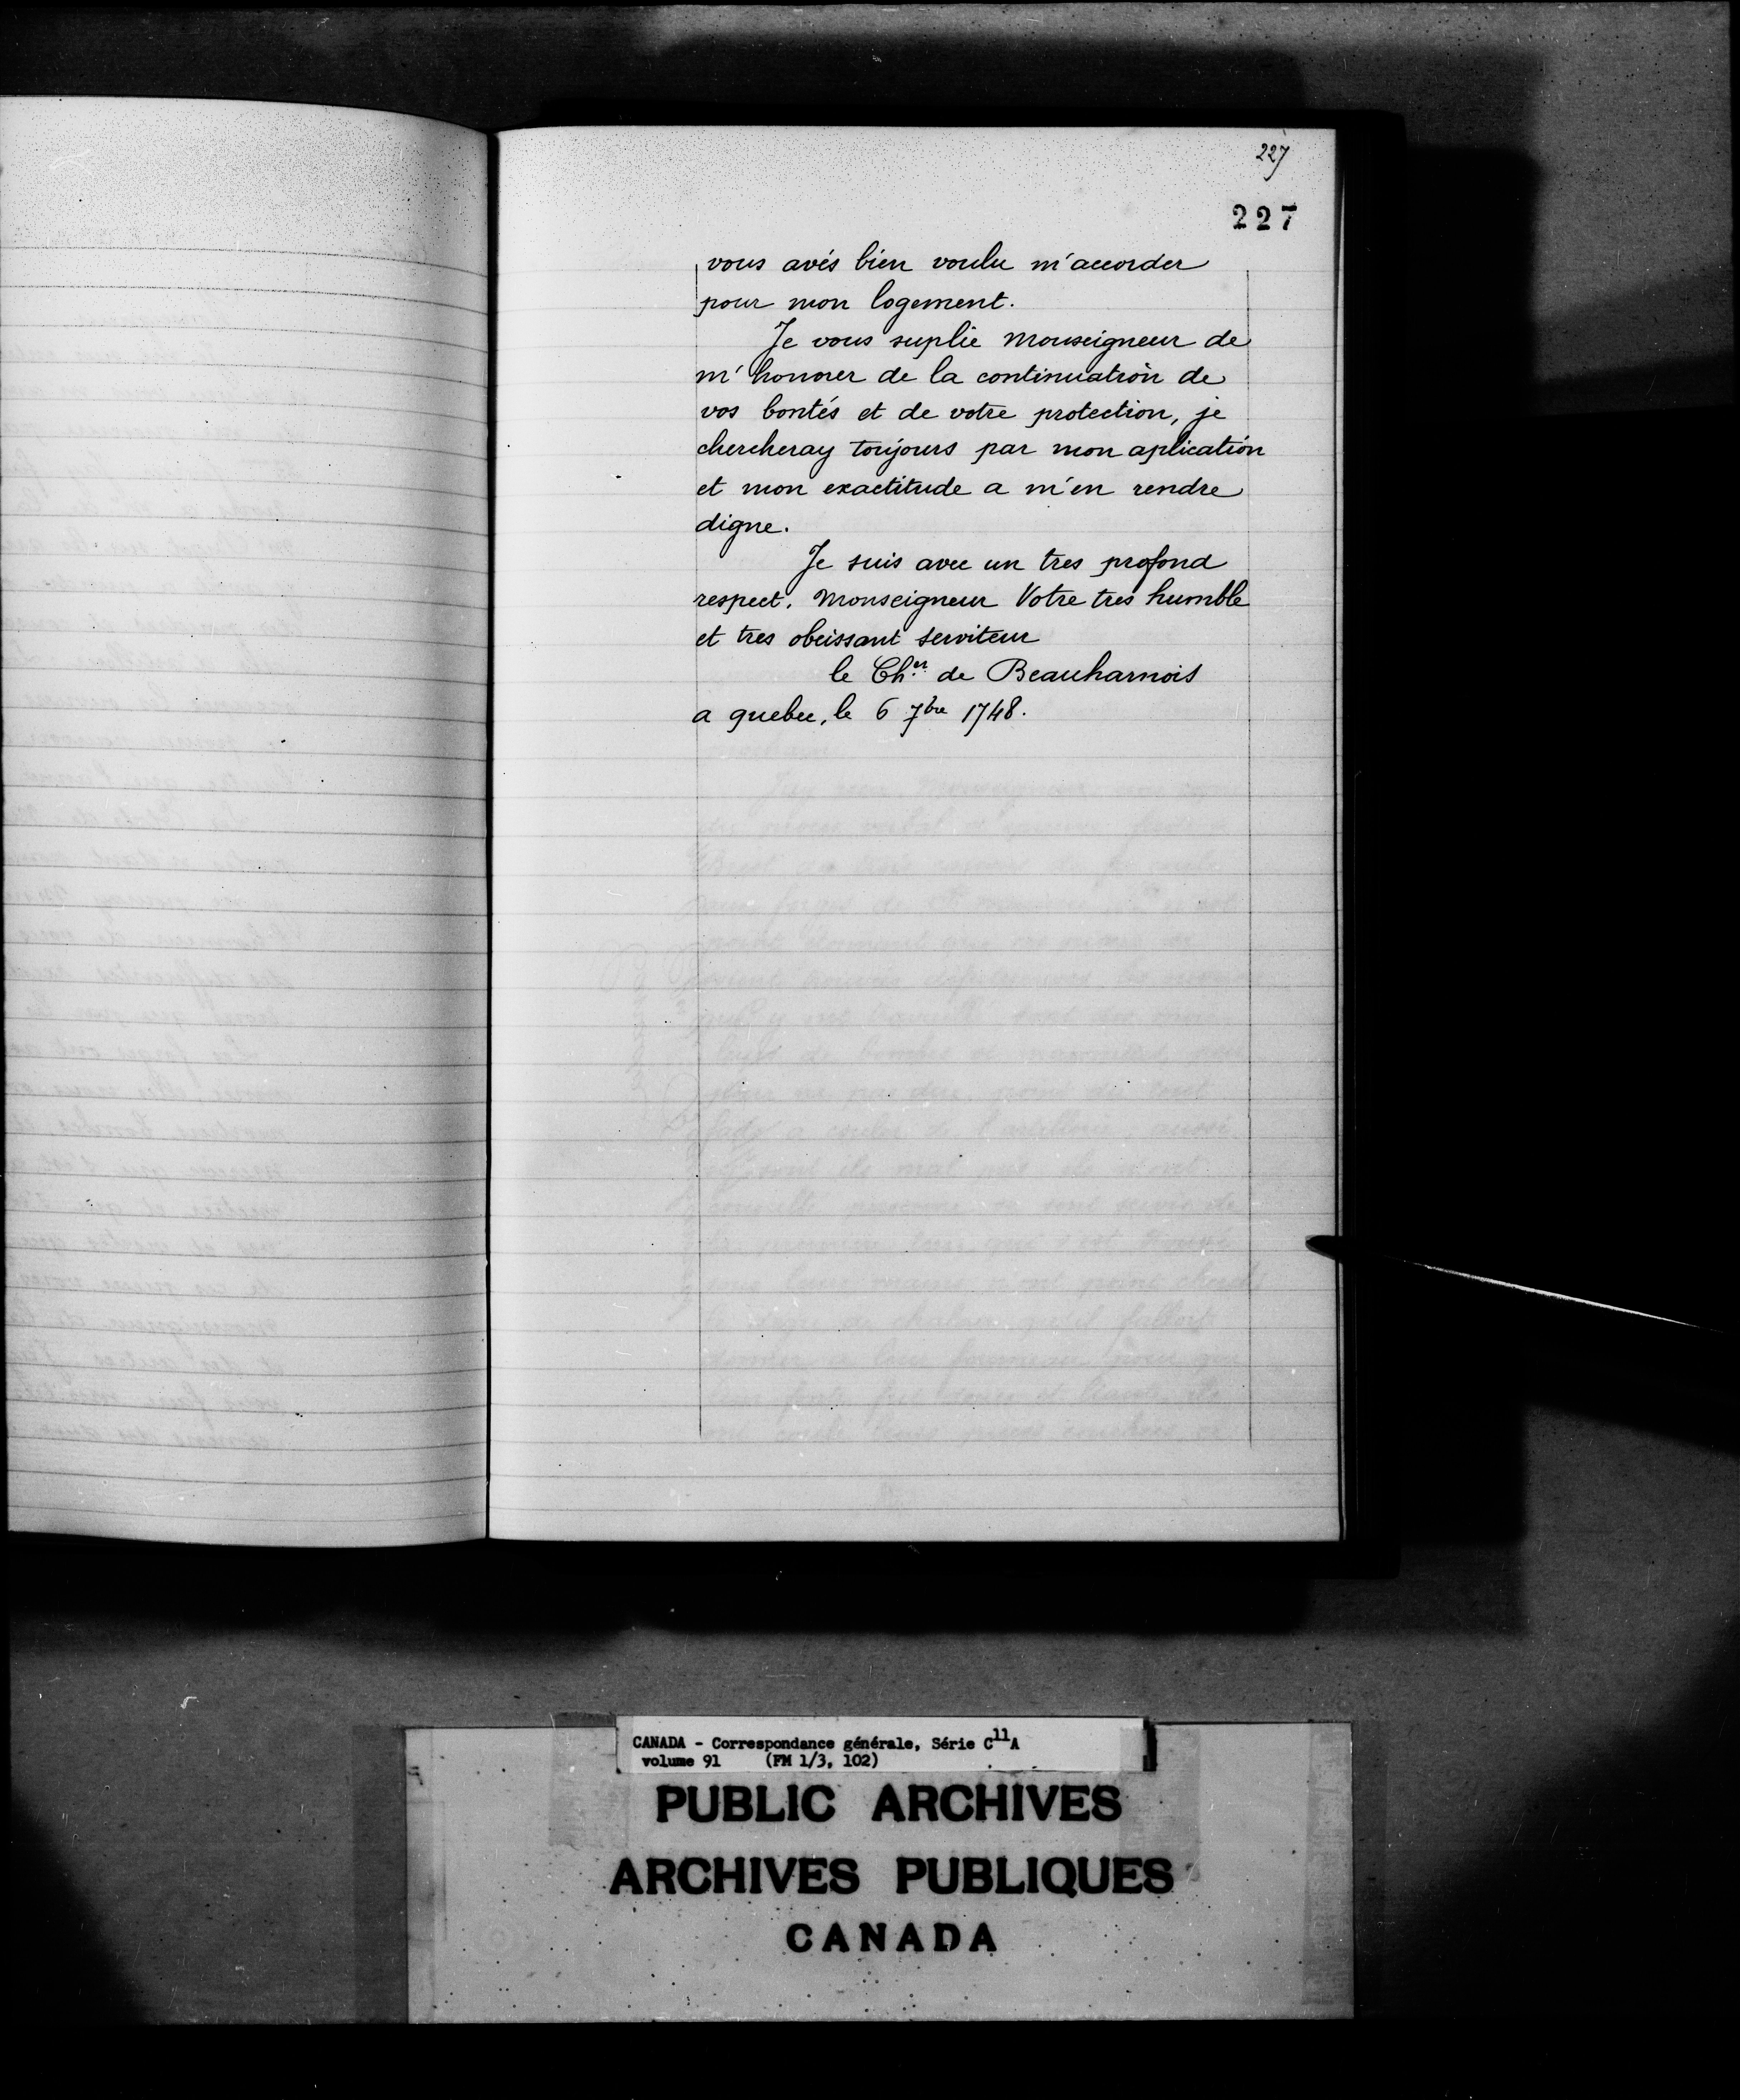 227
227
vous avés bien voulu m'accorder
pour mon logement.
Je vous suplie Monseigneur de
m'honorer de la continuation de
vos bontés et de votre protection, je
chercheray toujours par mon aplication
et mon exactitude a m'en rendre
digne.
Je suis avec un tres profond
respect. Monseigneur Votre tres humble
et tres obeissant serviteur
le Ch.er de Beauharnois
a quebec, le 6 7bre 1748.
CANADA - Correspondance générale, Série C11A
volume 91 (FM 1/3, 102)
PUBLIC ARCHIVES
ARCHIVES PUBLIQUES
CANADA